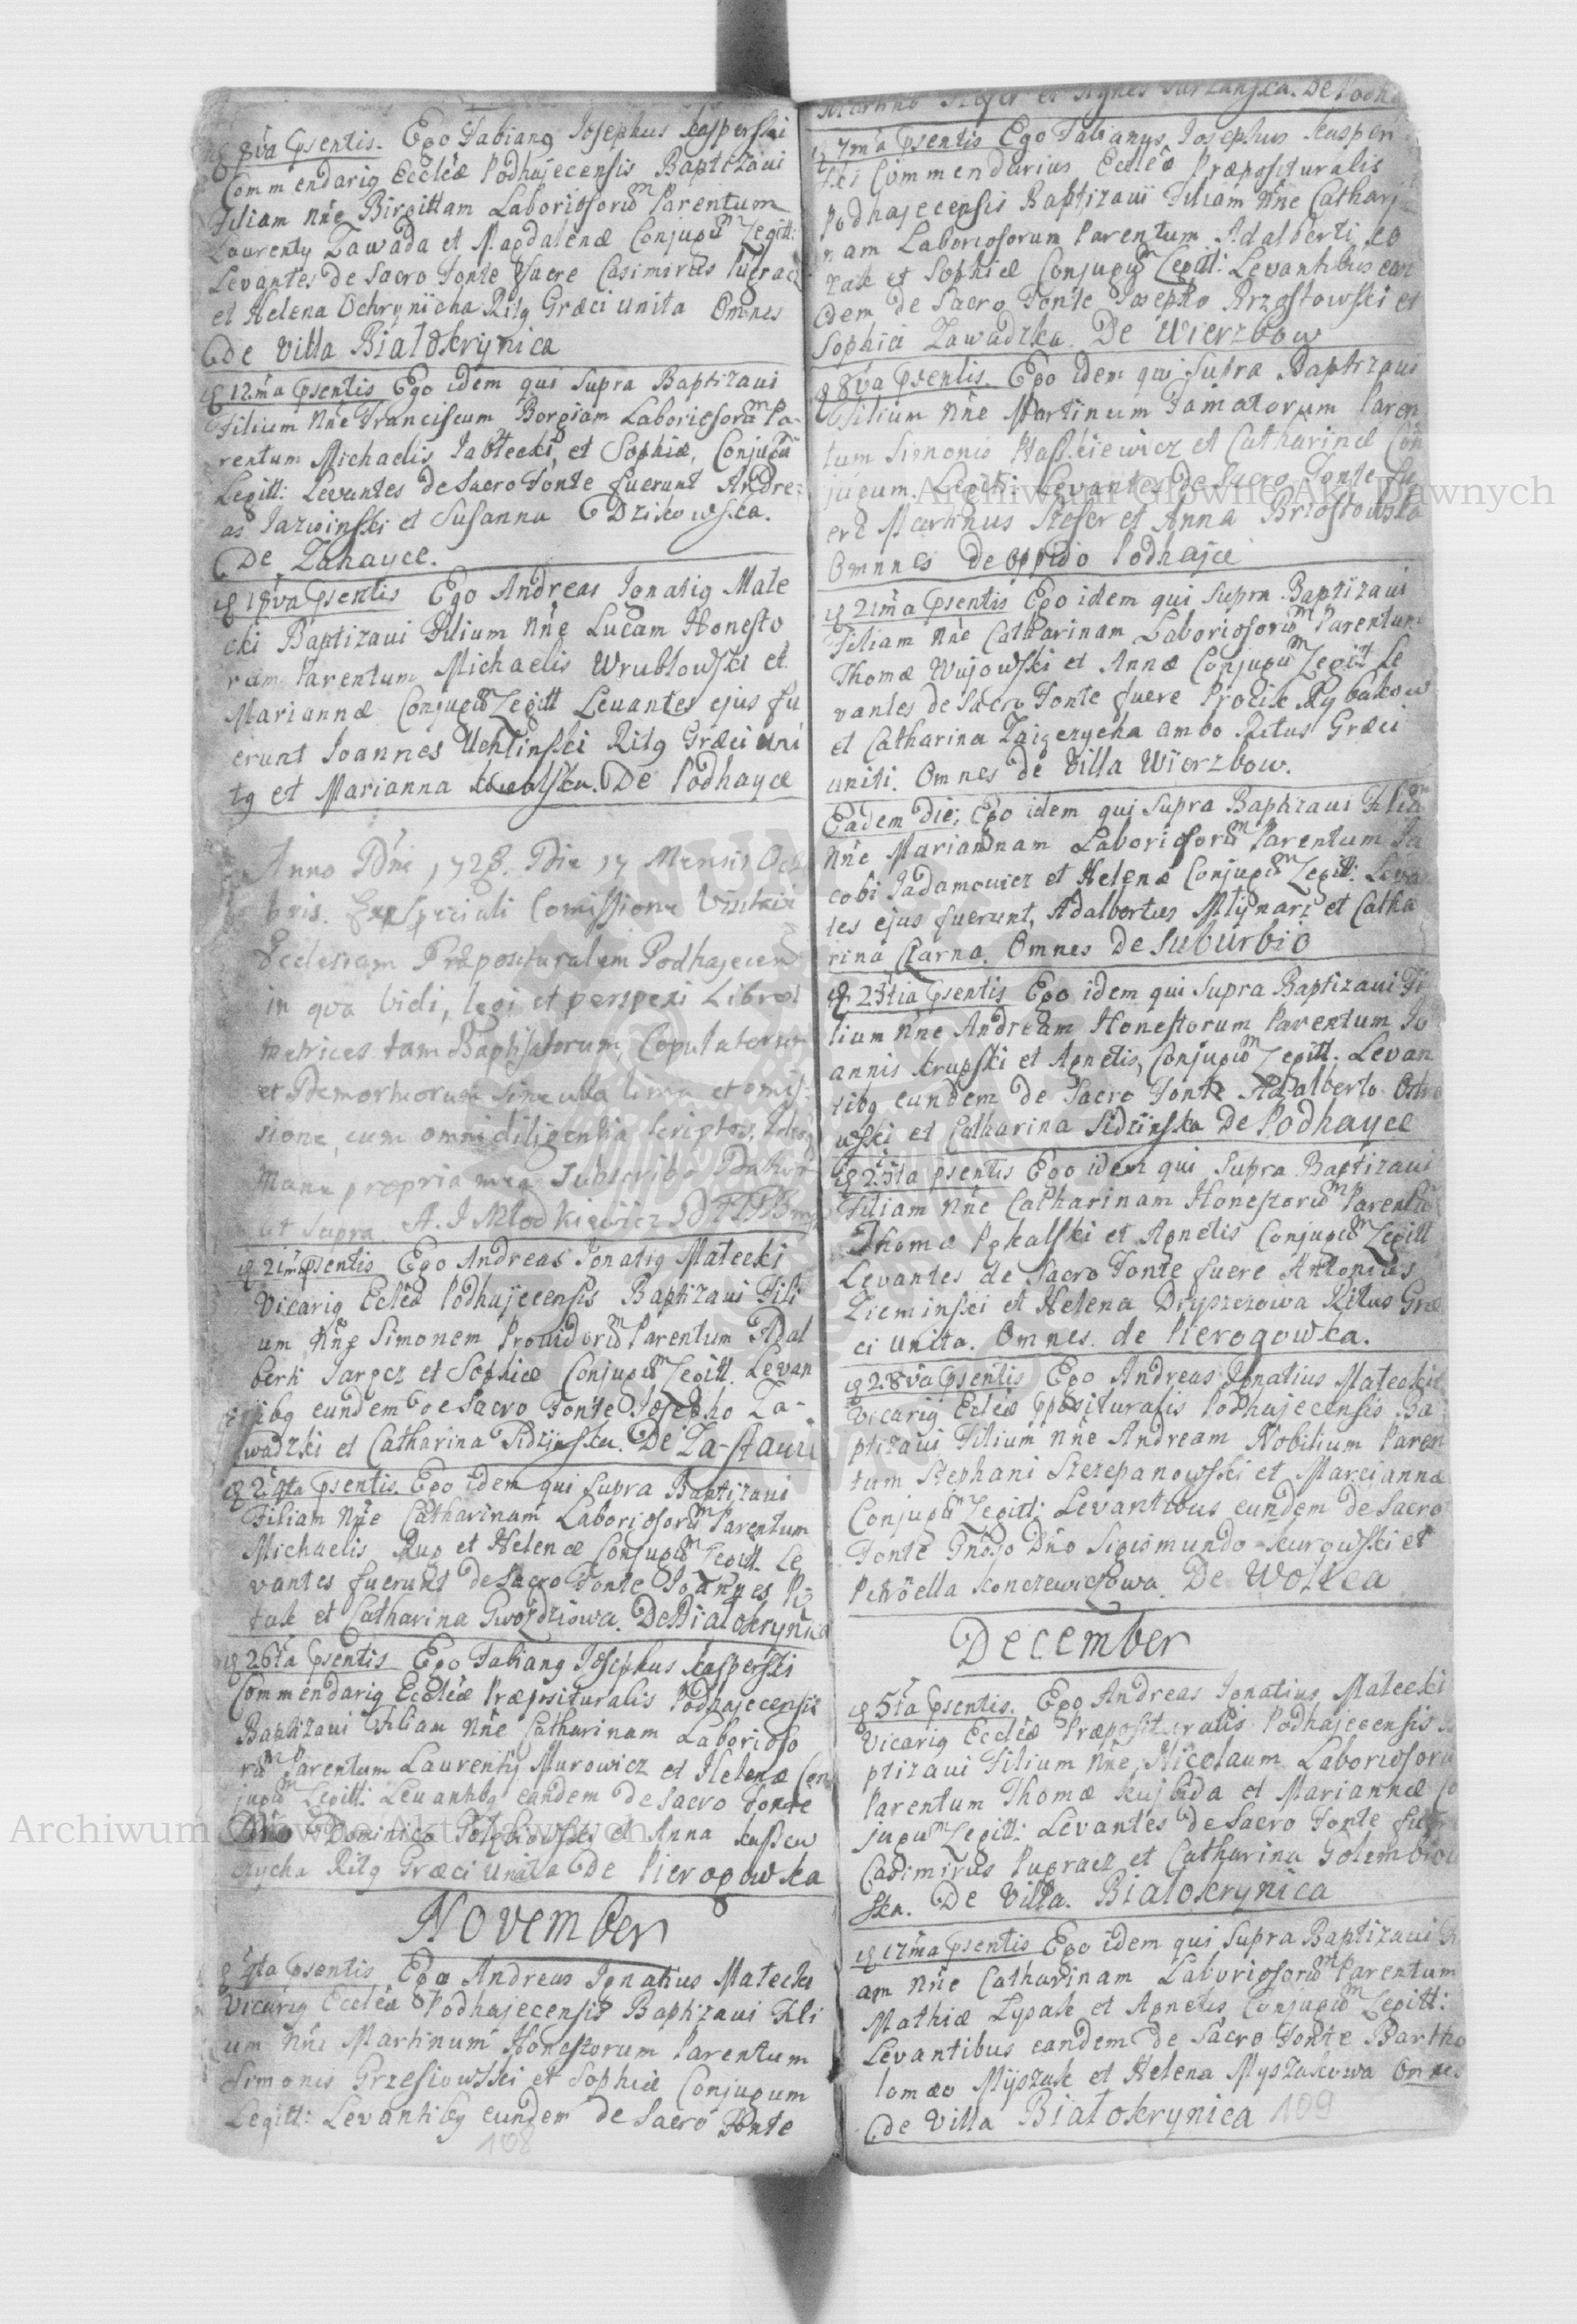 8va psentis. Ego Fabiang Josephus Kasperski
Commendarig Eccleæ Podhajecensis Baptizaui
Filiam Nñe Birgittam Laboriosorũ Parentum
Laurenty Zawada et Magdalenæ Conjugũ Legitt:
Levantes de Sacro Fonte fuere Casimirus
et Helena Ochryniicha Ritg Græci unita Omnes
de Villa Białokrynica
12ma psentis Ego idem qui Supra Baptizaui
Filium Nñe Franciscum Borgiam Laboriosorũ Pa-
rentum Michaelis Jabłecki, et Sophiæ, Conjugũ
Legitt: Levantes de Sacro Fonte fuerunt Andre:
as Jazwinski et Susanna Dzikowska.
De Zahayce.
18va psentis Ego Andreas Ignatig Małe
cki Baptizaui Filium Nñe Lucam Honesto
rum Parentum Michaelis Wrublowski et
Mariannæ Conjugũ Legitt Levantes ejus fu
erunt Joannes Uchlinski Ritg Græci uni
tg et Marianna Kowalska. De Podhayce
Anno Dñi 1728. Die 17 Mensis Octo
bris. Speciali Comissione
Ecclesiam Præposituralem Podhajecen
in qva Vidi, legi et perspexi Libros
metrices tam Baptisatorum, Copulatorum
et Demortuorum sine ulla lima et omis-
sione, cum omni diligentia scriptos,
Manu propria mea Subscribo
ut supra. A. J Młodkiewicz
21ma psentis Ego Andreas Ignatig Małecki
Vicarig Ecleæ Podhajecensis Baptizaui Fili
um Nñe Simonem Prouidorũ Parentum Adal
berti Jarocz et Sophiæ Conjugũ Legitt. Levan
tibg eundem de Sacro Fonte Josepho Za-
wadzki et Catharina Sidzinska. De Za-stauci
24ta psentis. Ego idem qui Supra Baptizaui
Filiam Nñe Catharinam Laboriosorũ Parentum
Michaelis Rup et Helenæ Conjugũ Legitt. Le
vantes fuerunt de Sacro Fonte Joannes
tak et Catharina Gwozdziowa. De Białokrynica
26ta psentis Ego Fabiang Josephus Kasperski
Commendarig Eccleæ Præposituralis Podhajecensis
Baptizaui Filiam Nñe Catharinam Laborioso
rũ Parentum Laurentij Murowicz et Helenæ Con
jugũ Legitt: Levantibg eandem de Sacro Fonte
Dño Dominico et Anna
Ritg Græci Unita De Pierogowka
November
4ta psentis Ego Andreas Ignatius Małecki
Vicarig Eccleæ Podhajecensis Baptizaui Fili
um Nñe Martinum Honestorum Parentum
Simonis Grzesiowski et Sophiæ Conjugum
Legitt: Levantibg eundem de Sacro Fonte
108
Martino et Agnes De
7ma psentis Ego Fabianus Josephus Kasper
ski Commendarius Eccleæ Præposituralis
Podhajecensis Baptizaui Filiam Nñe Cathari
nam Laboriosorum Parentum Adalberti Ko
zak et Sophiæ Conjugũ Legitt: Levantibus ean
dem de Sacro Fonte Josepho Brzostowski et
Sophia Zawadzka. De Wierzbow
8va psentis. Ego idem qui Supra Baptizaui
Filium Nñe Martinum Famatorum Paren
tum Simonis et Catharinæ Con
jugum. Legitt: Levantes de Sacro Fonte fu
ere Martinus et Anna Brzostowska
Omnnes de oppido Podhajce
21ma psentis Ego idem qui Supra Baptizaui
Filiam Nñe Catharinam Laboriosorũ Parentum
Thomæ Wujowski et Annæ Conjugũ Legitt Le
vantes de Sacro Fonte fuere Procik Rybakow
et Catharina ambo Ritus Græci
uniti. Omnes de Villa Wierzbow.
Eadem die; Ego idem qui Supra Baptizaui Filiã
Nñe Mariannam Laboriosorũ Parentum Ja
cobi Jadamowicz et Helenæ Conjugũ Legitt: Levan
tes ejus fuerunt, Adalbertus Młynarz et Catha
rina Czarna. Omnes De Suburbio
23tia psentis Ego idem qui Supra Baptizaui Fi
lium Nñe Andream Honestorum Parentum Jo
annis Krupski et Agnetis, Conjugũ Legitt. Levan
tibg eundem de Sacro Fonte Adalberto
wski et Catharina Sidzinska De Podhayce
25ta psentis Ego idem qui Supra Baptizaui
Filiam Nñe Catharinam Honestorũ Parentũ
Thomæ et Agnetis Conjugũ Legitt
Levantes de Sacro Fonte fuere Antonius
Zieminski et Helena Dryszczowa Ritus Græ
ci Unita. Omnes. de Pierogowka.
28va psentis Ego Andreas Ignatius Małecki
Vicarig Ecleæ pposituralis Podhajecensis Ba
ptizaui Filium Nñe Andream Nobilium Paren
tum Stephani Szczepanowski et Mariannæ
Conjugũ Legitt: Levantibus eundem de Sacro
Fonte Gñoso Dño Sigismundo Kurowski et
Petronella Konczewiczowa. De Wolica
December
5ta psentis. Ego Andreas Ignatius Małecki
Vicarig Eccleæ Præposituralis Podhajecensis Ba
ptizaui Filium Nñe, Nicolaum Laboriosorũ
Parentum Thomæ Kujbida et Mariannæ Co
jugũ Legitt: Levantes de Sacro Fonte fuere
Casimirus Pugracz et Catharina Golembiow
ska. De Villa. Białokrynica
12ma psentis Ego idem qui Supra Baptizaui Fi
am Nñe Catharinam Laboriosorũ Parentum
Mathiæ Łysak et Agnetis Conjugũ Legitt:
Levantibus eandem de Sacro Fonte Bartho
lomæo Myszak et Helena Myszakowa Omnes
de Villa Białokrynica 109